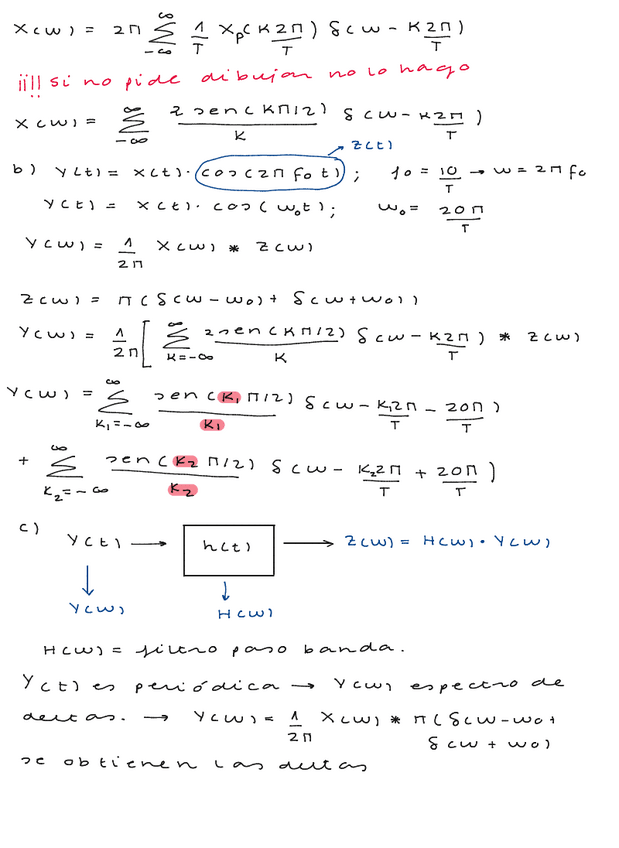 X(w) = 2π ∑_{-∞}^{∞} 1/T Xp(K2π/T) δ(w - K2π/T)
¡¡!! si no pide dibujar no lo hago
X(w) = ∑_{-∞}^{∞} 2 sen(Kπ/2)/K δ(w - K2π/T)
z(t)
b) y(t) = x(t) · cos(2π fo t) ; fo = 10/T → w = 2π fo
y(t) = x(t) · cos(wo t); wo = 20π/T
Y(w) = 1/2π X(w) * Z(w)
Z(w) = π(δ(w - wo) + δ(w + wo))
Y(w) = 1/2π [ ∑_{K=-∞}^{∞} 2 sen(Kπ/2)/K δ(w - K2π/T) * Z(w)
Y(w) = ∑_{K₁=-∞}^{∞} sen(K₁π/2)/K₁ δ(w - K₁2π/T - 20π/T)
+ ∑_{K₂=-∞}^{∞} sen(K₂π/2)/K₂ δ(w - K₂2π/T + 20π/T)
c) y(t) → h(t) → Z(w) = H(w) · Y(w)
Y(w) H(w)
H(w) = filtro paso banda.
Y(t) es periódica → Y(w) espectro de
deltas. → Y(w) = 1/2π X(w) * π(δ(w - wo +
δ(w + wo)
se obtienen las deltas